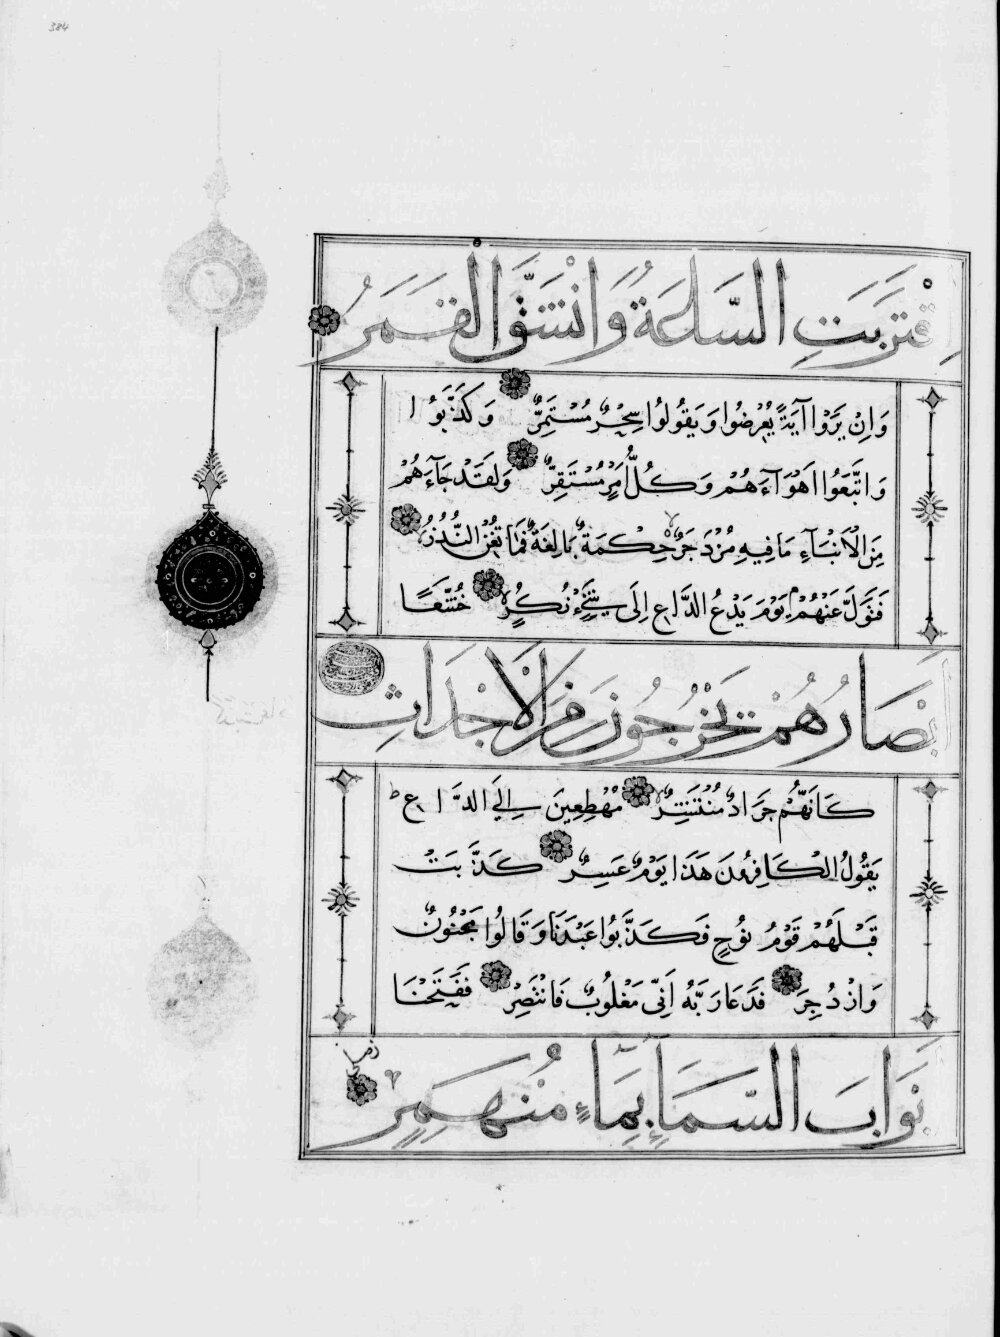 384
اِقْتَرَبَتِ السَّاعَةُ وَانْشَقَّ الْقَمَرُ
وَاِنْ يَرَوْا آيَةً يُعْرِضُوا وَيَقُولُوا سِحْرٌ مُسْتَمِرٌّ وَكَذَّبُوا
وَاتَّبَعُوا اَهْوَآءَهُمْ وَكُلُّ اَمْرٍ مُسْتَقِرٌّ وَلَقَدْ جَآءَهُمْ
مِنَ الْاَنْبَآءِ مَا فِيهِ مُزْدَجَرٌ حِكْمَةٌ بَالِغَةٌ فَمَا تُغْنِ النُّذُرُ
فَتَوَلَّ عَنْهُمْ يَوْمَ يَدْعُ الدَّاعِ اِلَى شَيْءٍ نُكُرٍ خُشَّعًا
اَبْصَارُهُمْ يَخْرُجُونَ مِنَ الْاَجْدَاثِ
كَاَنَّهُمْ جَرَادٌ مُنْتَشِرٌ مُهْطِعِينَ اِلَى الدَّاعِ ط
يَقُولُ الْكَافِرُونَ هَذَا يَوْمٌ عَسِرٌ كَذَّبَتْ
قَبْلَهُمْ قَوْمُ نُوحٍ فَكَذَّبُوا عَبْدَنَا وَقَالُوا مَجْنُونٌ
وَازْدُجِرَ فَدَعَا رَبَّهُ اَنِّي مَغْلُوبٌ فَانْتَصِرْ فَفَتَحْنَا
اَبْوَابَ السَّمَاءِ بِمَاءٍ مُنْهَمِرٍ